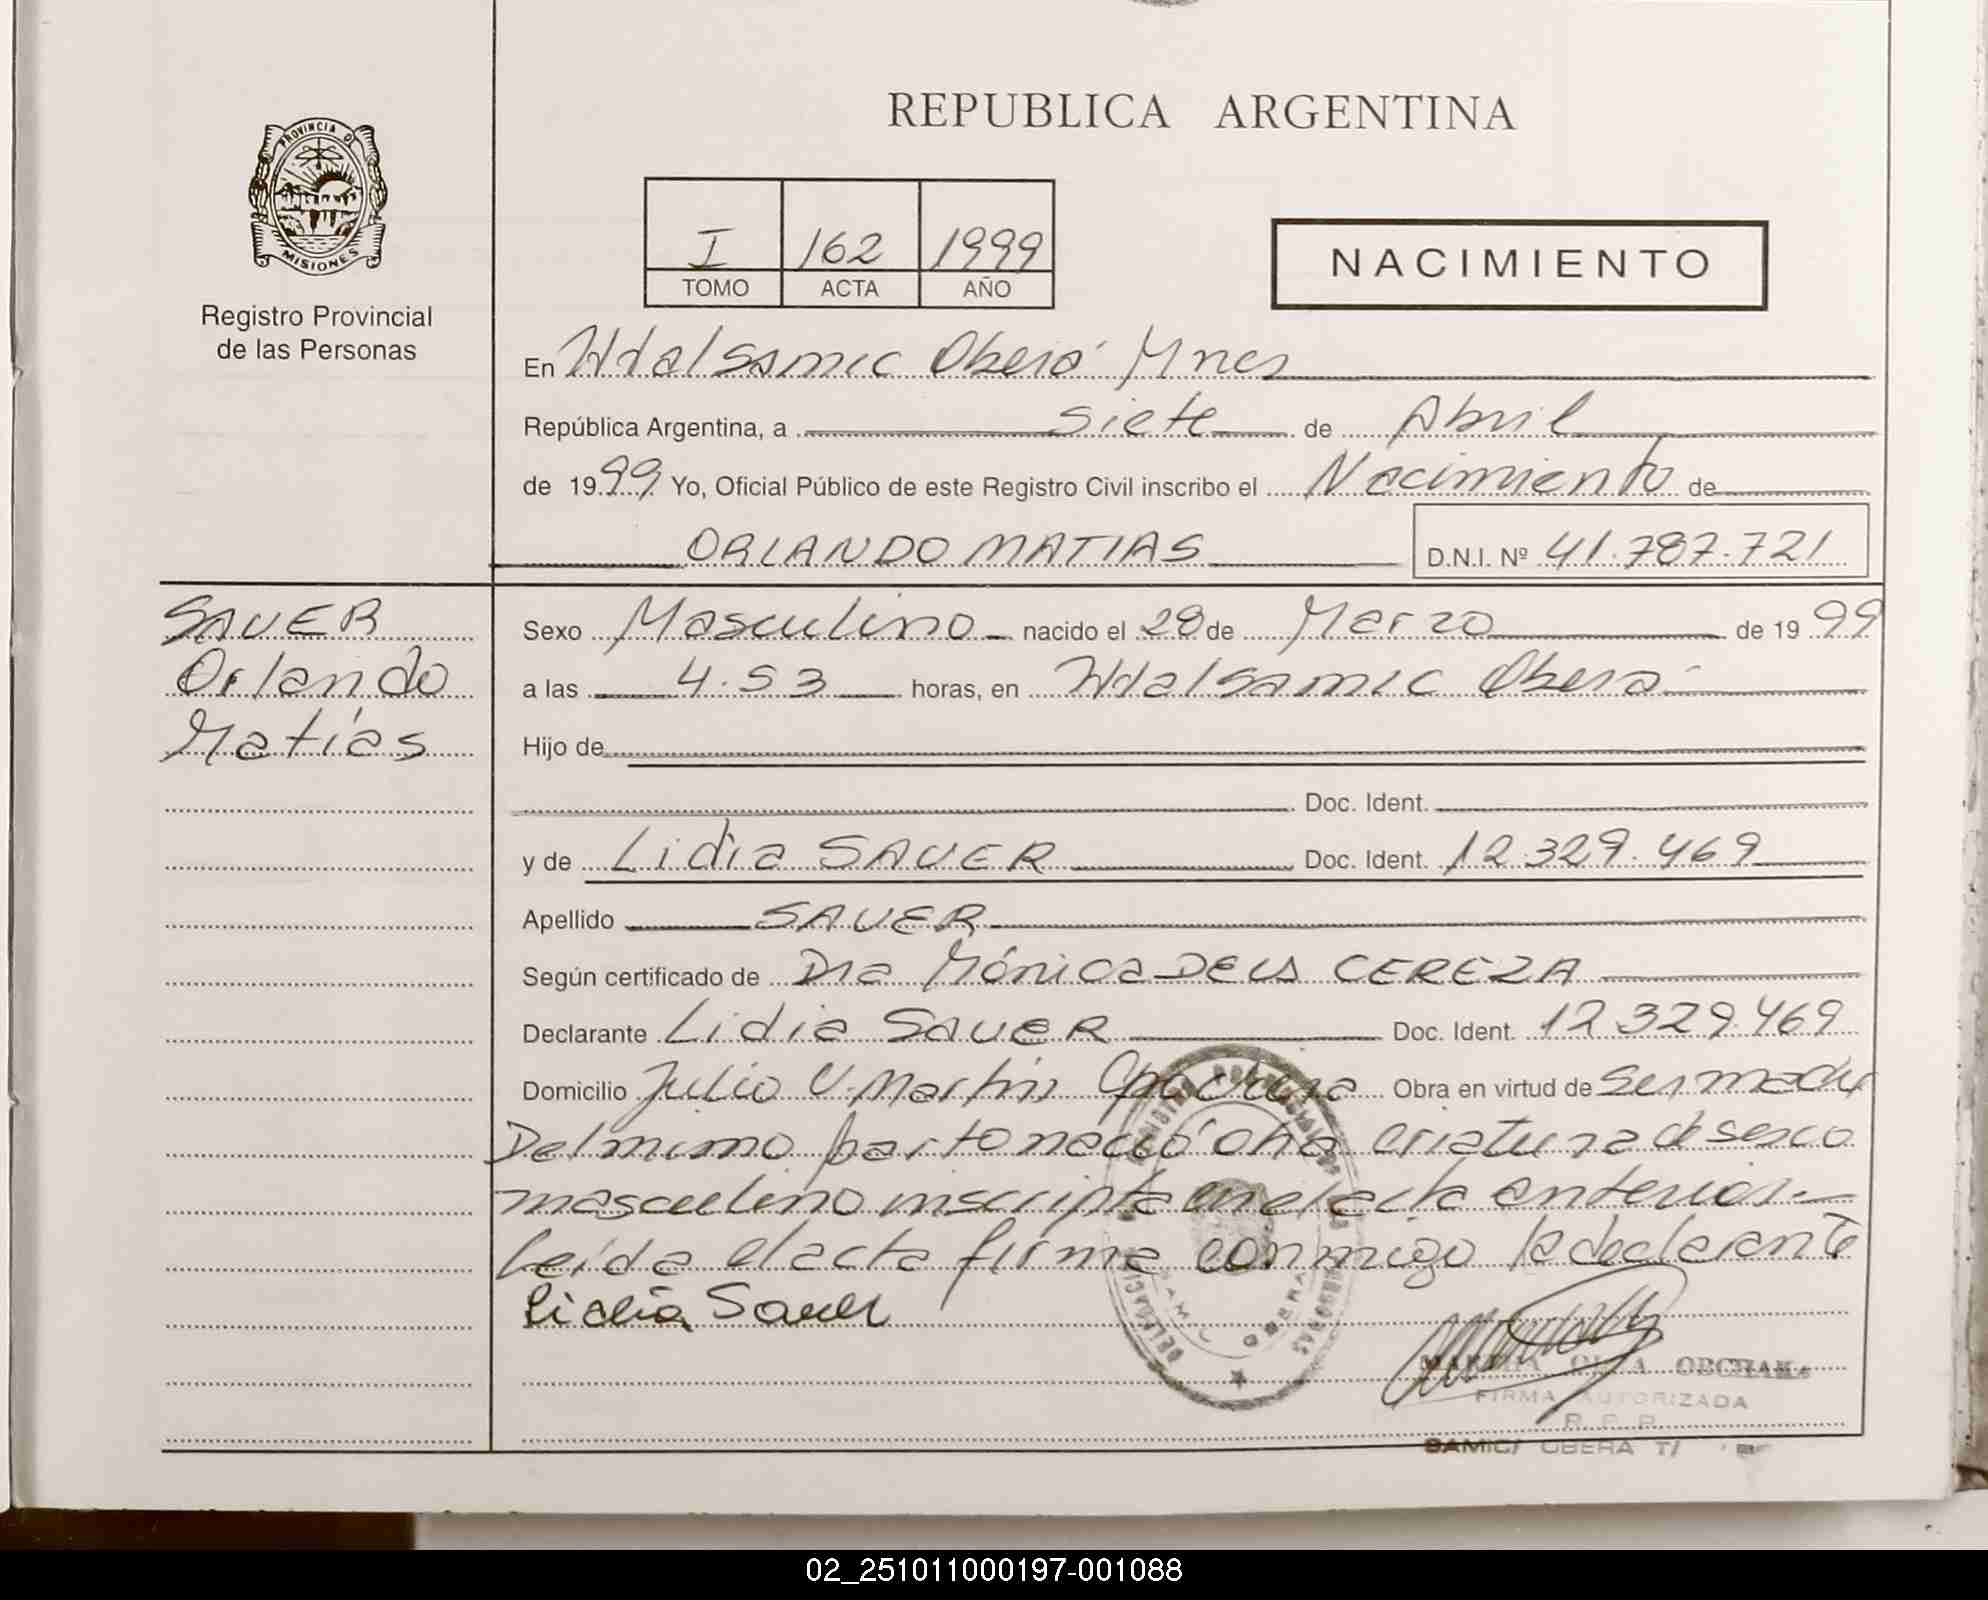 REPUBLICA ARGENTINA
PROVINCIA DE
MISIONES
Registro Provincial
de las Personas
I 162 1999
TOMO ACTA AÑO
NACIMIENTO
En Oberá Mnes
República Argentina, a siete de Abril
de 1999 Yo, Oficial Público de este Registro Civil inscribo el Nacimiento de
ORLANDO MATIAS D.N.I. Nº 41.787.721
SAUER
Orlando
Matías
Sexo Masculino nacido el 28 de Marzo de 1999
a las 4.53 horas, en Oberá
Hijo de
Doc. Ident.
y de Lidia SAUER Doc. Ident. 12.329.469
Apellido SAUER
Según certificado de Dra Mónica CEREZA
Declarante Lidia SAUER Doc. Ident. 12.329.469
Domicilio Julio U. Martin Obra en virtud de ser madre
Del mismo parto nació otra criatura de sexo
masculino inscripta en el acta anterior.-
Leída el acta firma conmigo la declarante
Lidia Sauer
MARTHA
FIRMA AUTORIZADA
R. P. P.
SAMIC/ OBERA T/
02_251011000197-001088